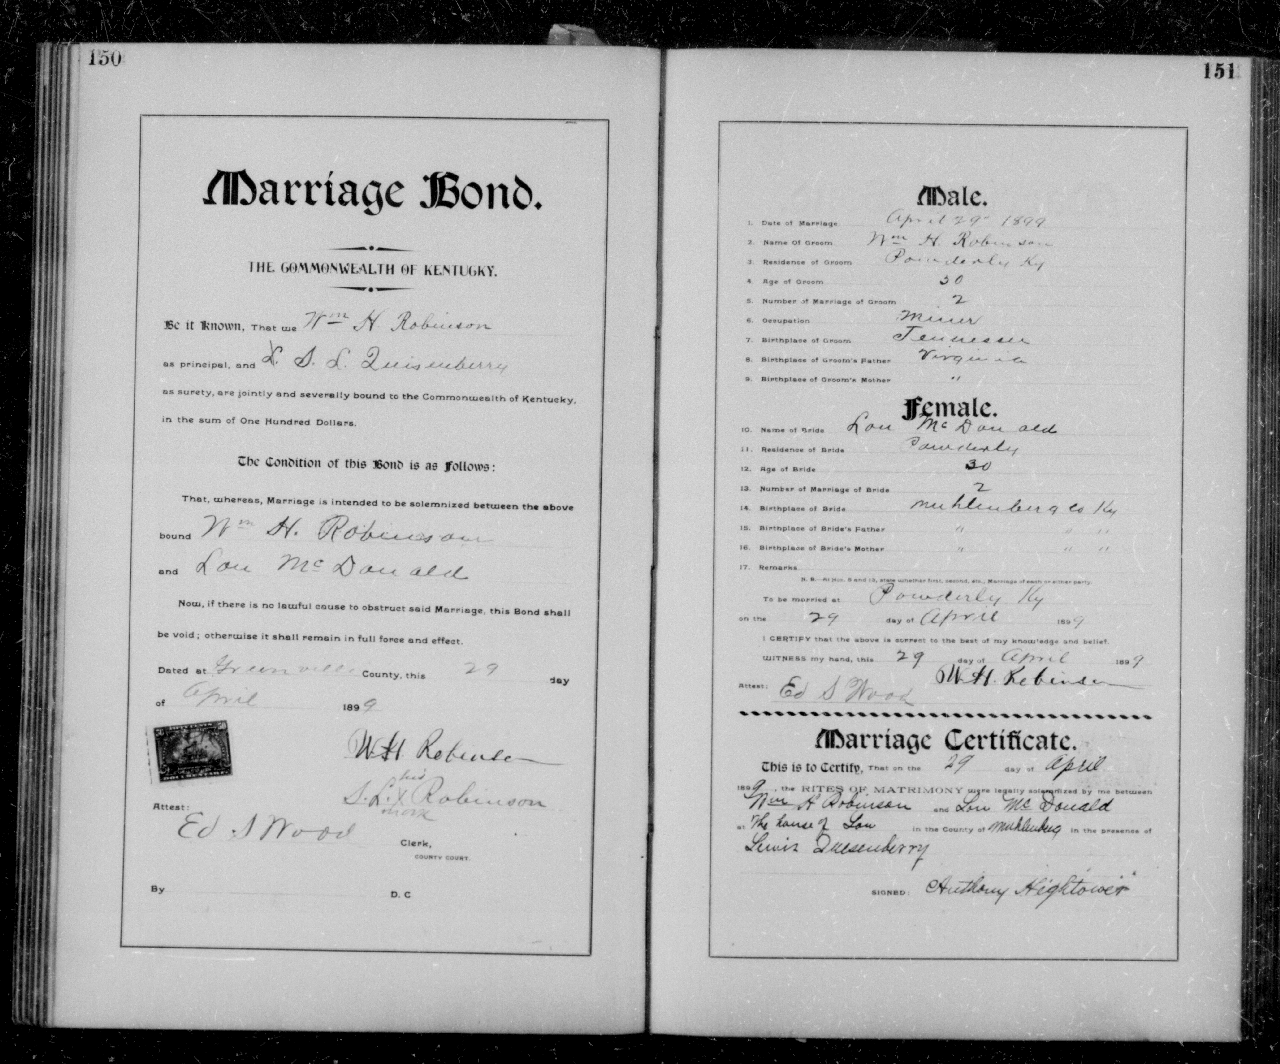 150
Marriage Bond.
THE COMMONWEALTH OF KENTUCKY.
Be it Known, That we Wm H Robinson
as principal, and S. L. Quisenberry
as surety, are jointly and severally bound to the Commonwealth of Kentucky,
in the sum of One Hundred Dollars.
The Condition of this Bond is as Follows:
That, whereas, Marriage is intended to be solemnized between the above
bound Wm H. Robinson
and Lou McDonald
Now, if there is no lawful cause to obstruct said Marriage, this Bond shall
be void; otherwise it shall remain in full force and effect.
Dated at Greenville County, this 29 day
of April 1899
WH Robinson
his
S. L. X Robinson
mark
Attest:
Ed S Wood
Clerk,
COUNTY COURT.
By D. C
151
Male.
1. Date of Marriage April 29 1899
2. Name Of Groom Wm H. Robinson
3. Residence of Groom Powderly Ky
4. Age of Groom 30
5. Number of Marriage of Groom 2
6. Occupation Miner
7. Birthplace of Groom Tennessee
8. Birthplace of Groom's Father Virginia
9. Birthplace of Groom's Mother "
Female.
10. Name of Bride Lou McDonald
11. Residence of Bride Powderly
12. Age of Bride 30
13. Number of Marriage of Bride 2
14. Birthplace of Bride Muhlenberg Co Ky
15. Birthplace of Bride's Father " " "
16. Birthplace of Bride's Mother " " "
17. Remarks
N. B.—At Nos. 5 and 13, state whether first, second, etc., Marriage of each or either party.
To be married at Powderly Ky
on the 29 day of April 1899
I CERTIFY that the above is correct to the best of my knowledge and belief.
WITNESS my hand, this 29 day of April 1899
W.H. Robinson
Attest: Ed S Wood
Marriage Certificate.
This is to Certify, That on the 29 day of April
1899, the RITES OF MATRIMONY were legally solemnized by me between
Wm H Robinson and Lou McDonald
at The house of Lou in the County of Muhlenberg in the presence of
Lewis Quesenberry
SIGNED: Anthony Hightower